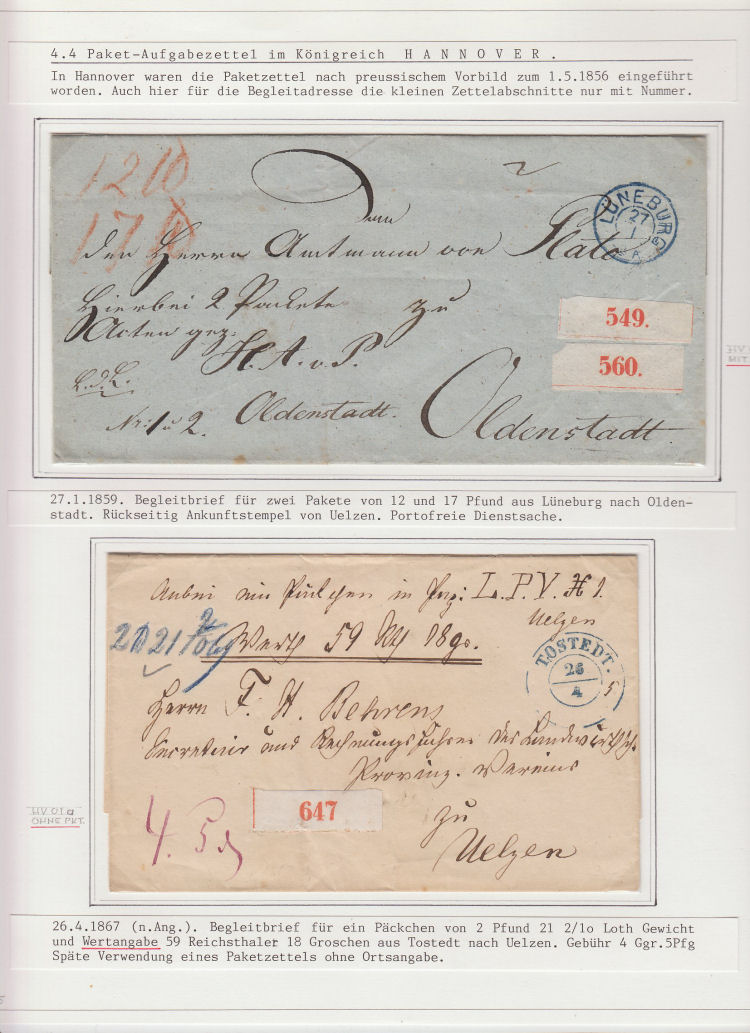 4.4 Paket-Aufgabezettel im Königreich HANNOVER.
In Hannover waren die Paketzettel nach preussischem Vorbild zum 1.5.1856 eingeführt
worden. Auch hier für die Begleitadresse die kleinen Zettelabschnitte nur mit Nummer.
12
17
Dem
LÜNEBURG
27
1
A.
den Herrn Amtmann von Plato
Hierbei 2 Packete
Acten gez:
zu
549.
H. A. v. P.
560.
Oldenstadt.
Nr: 1 u 2.
Oldenstadt.
27.1.1859. Begleitbrief für zwei Pakete von 12 und 17 Pfund aus Lüneburg nach Olden-
stadt. Rückseitig Ankunftstempel von Uelzen. Portofreie Dienstsache.
Anbei ein Päckchen in Pap: L.P.V. # 1.
Uelzen
Werth 59 18
TOSTEDT.
26
4
5
Herrn F. H. Behrens
Secretair und Rechnungsführer des Landwirthsch.
Provinz. Vereins
647
4. 5
zu
Uelzen
OHNE PKT.
26.4.1867 (n.Ang.). Begleitbrief für ein Päckchen von 2 Pfund 21 2/1o Loth Gewicht
und Wertangabe 59 Reichsthaler 18 Groschen aus Tostedt nach Uelzen. Gebühr 4 Ggr.5Pfg
Späte Verwendung eines Paketzettels ohne Ortsangabe.